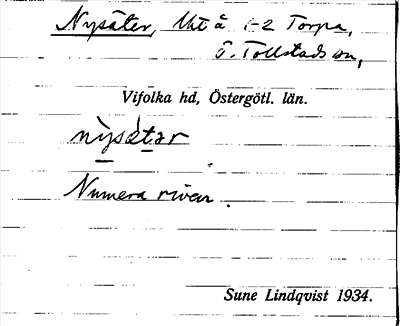 Nysäter, Utå 1-2 Torpa,
T. Tollstads sn,
Vifolka hd, Östergötl. län.
nysätar
Numera riven.
Sune Lindqvist 1934.